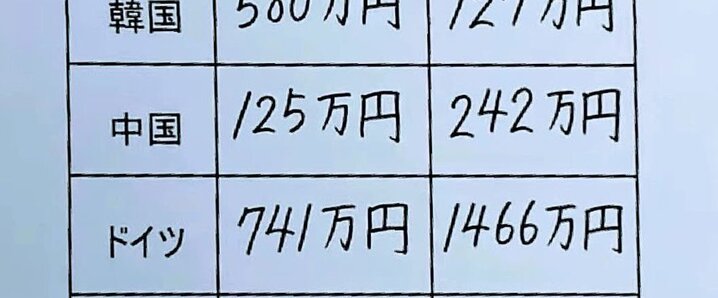 韓国 580万円 727万円
中国 125万円 242万円
ドイツ 741万円 1466万円